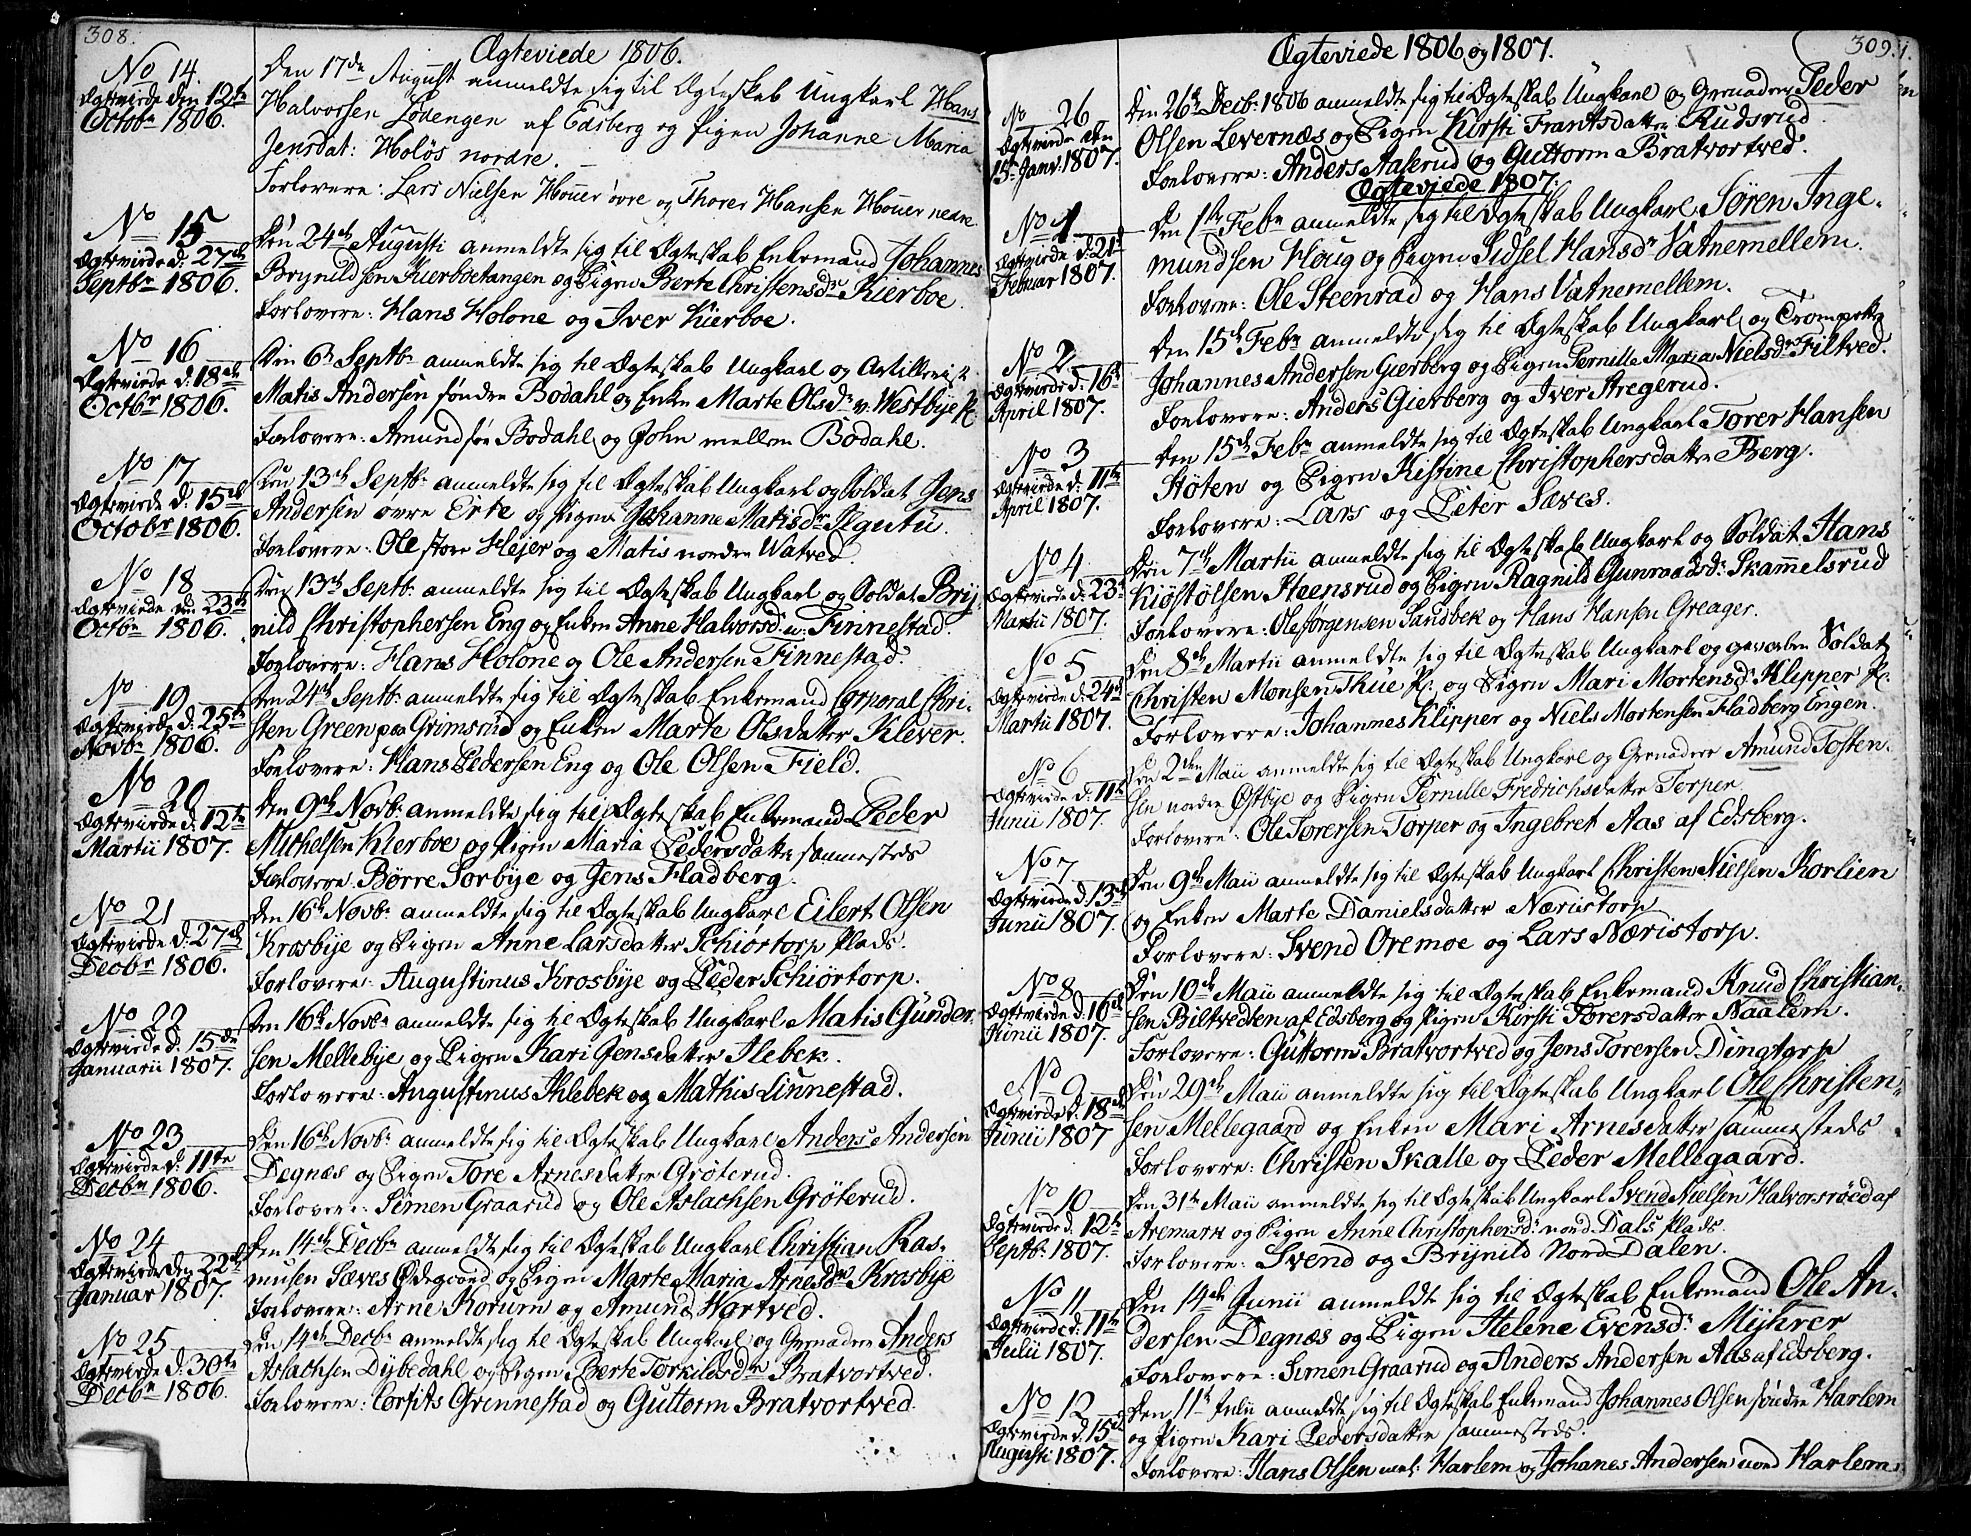 308.
Ægteviede 1806.
No 14.
Ægteviede den 12te
Octobr 1806.
Den 17de August anmeldte sig til Ægteskab Ungkarl Hans
Halvorsen Lövengen af Edsberg og Pigen Johanne Maria
Jensdat: Holös nordre.
Forlovere: Lars Nielsen Houer övre og Thorer Hansen Houer nedre
No 15
Ægteviede d: 27de
Septbr 1806.
Den 24de Augusti anmeldte sig til Ægteskab Enkemand Johannes
Brynildsen Kierboetangen og Pigen Berte Christensdr Kierboe.
Forlovere: Hans Holone og Iver Kierboe.
No 16
Ægteviede d: 18de
Octbr 1806.
Den 6te Septbr anmeldte sig til Ægteskab Ungkarl og Artillerist
Matis Andersen söndre Bodahl og Enke Marte Olsdr v. Westbye Pl.
Forlovere: Amund söe Bodahl og John mellem Bodahl.
No 17
Ægteviede d: 15de
Octobr 1806.
Den 13de Septbr anmeldte sig til Ægteskab Ungkarl og Soldat Jens
Andersen övre Erte og Pigen Johanne Matisdr Ilgutu.
Forlovere: Ole store Hejer og Matis nordre Watved.
No 18
Ægteviede den 23de
Octbr 1806.
Den 13de Septbr anmeldte sig til Ægteskab Ungkarl og Soldat Bryj
nild Christophersen Eng og Enken Anne Halvorsd: w: Finnestad.
Forlovere: Hans Holone og Ole Andersen Finnestad.
No 19
Ægteviede d: 25de
Novbr 1806.
Den 24de Septbr anmeldte sig til Ægteskab Enkemand Corporal Chri-
sten Green paa Grimsrud og Enken Marte Olsdatter Klever.
Forlovere: Hans Pedersen Eng og Ole Olsen Field.
No 20
Ægteviede d: 12te
Martii 1807.
Den 9de Novbr anmeldte sig til Ægteskab Enkemand Peder
Michelsen Kierboe og Pigen Maria Pedersdatter sammesteds
Forlovere: Börre Sorbye og Jens Fladberg.
No 21
Ægteviede d: 27de
Decbr 1806.
Den 16de Novbr anmeldte sig til Ægteskab Ungkarl Eilert Olsen
Krosbye og Pigen Anne Larsdatter Schiörtorp Plads.
Forlovere: Augustinus Krosbye og Peder Schiörtorp.
No 22
Ægteviede d. 15de
Januarii 1807.
Den 16de Novbr anmeldte sig til Ægteskab Ungkarl Matis Gunder
sen Mellebye og Pigen Kari Jensdatter Ilebek.
Forlovere: Augustinus Ihlebek og Mathis Linnestad.
No 23
Ægteviede d: 11te
Decbr 1806.
Den 16de Novbr anmeldte sig til Ægteskab Ungkarl Anders Andersen
Degnæs og Pigen Tore Arnesdatter Gröterud.
Forlovere: Simen Graarud og Ole Aslachsen Gröterud.
No 24
Ægteviede den 22de
Januar 1807.
Den 14de Decbr anmeldte sig til Ægteskab Ungkarl Christian Ras-
musen Sæves Ödegaard og Pigen Marte Maria Arnesdr Krosbye
Forlovere: Arne Korum og Amund Hortved.
No 25
Ægteviede d: 30te
Decbr 1806.
Den 14de Decbr anmeldte sig til Ægteskab Ungkarl og Grenadeer Anders
Aslachsen Dybedahl og Pigen Berte Torkildsdr Bratvortved.
Forlovere: Corfits Grinnestad og Guttorm Bratvortved.
309.
Ægteviede 1806 og 1807.
No 26
Ægteviede den
15de Janv: 1807.
Den 26de Decb: 1806 anmeldte sig til Ægteskab Ungkarl og Grenadeer Peder
Olsen Levernæs og Pigen Kirsti Frantsdatter Rudsrud.
Forlovere: Anders Aaserud og Guttorm Bratvortved.
Ægteviede 1807.
No 1
Ægteviede d: 21de
Februar 1807.
Den 1ste Febr anmeldte sig til Ægteskab Ungkarl Sören Inge-
mundsen Houg og Pigen Sidsel Hansdr Vatnemellem.
Forlovere: Ole Steenrad og Hans Vatnemellem.
No 2
Ægteviede d: 16de
April 1807.
Den 15de Febr anmeldte sig til Ægteskab Ungkarl og Trompeter
Johannes Andersen Gierberg og Pigen Pernille Maria Nielsdr Filtved.
Forlovere: Anders Gierberg og Iver Aregerud.
No 3
Ægteviede d: 11te
April 1807.
Den 15de Febr anmeldte sig til Ægteskab Ungkarl Torer Hansen
Stöten og Pigen Kistine Christophersdatter Berg.
Forlovere: Lars og Peter Sæves.
No 4
Ægteviede d: 23de
Martii 1807.
Den 7de Martii anmeldte sig til Ægteskab Ungkarl og Soldat Hans
Kiöstölsen Steensrud og Pigen Ragnild Gunvoldsdr Skammelsrud
Forlovere: Ole Jörgensen Sandbek og Hans Hansen Greager.
No 5
Ægteviede d: 24de
Martii 1807.
Den 8de Martii anmeldte sig til Ægteskab Ungkarl og gevorben Soldat
Christen Monsen Thue Pl. og Pigen Mari Mortensd: Klipper Pl.
Forlovere: Johannes Klipper og Niels Mortensen Fladberg Engen.
No 6
Ægteviede d: 11te
Junii 1807.
Den 2den Maii anmeldte sig til Ægteskab Ungkarl og Grenadeer Amund Tosten-
sen nordre Östbye og Pigen Pernille Fredrichsdatter Torper.
Forlovere: Ole Torersen Torper og Ingebret Aas af Edsberg.
No 7
Ægteviede d: 13de
Junii 1807.
Den 9de Maii anmeldte sig til Ægteskab Ungkarl Christen Nielsen Korlien
og Enken Marte Danielsdatter Næristorp
Forlovere: Svend Oremoe og Lars Næristorp.
No 8
Ægteviede d. 16de
Junii 1807.
Den 10de Maii anmeldte sig til Ægteskab Enkemand Knud Christian-
sen Biltvedten af Edsberg og Pigen Kirsti Torersdatter Naalem.
Forlovere: Guttorm Bratvortved og Jens Torersen Dingtorp
No 9
Ægteviede d. 18de
Junii 1807
Den 29de Maii anmeldte sig til Ægteskab Ungkarl Ole Christen-
sen Mellegaard og Enken Mari Arnesdatter sammesteds
Forlovere: Christen Skalle og Peder Mellegaard.
No 10
Ægteviede d. 12te
Septbr 1807.
Den 31te Maii anmeldte sig til Ægteskab Ungkarl Svend Nielsen Halvorsröed af
Aremark og Pigen Anne Christophersd: nord Dals Plads
Forlovere: Svend og Brynild Nord Dalen.
No 11
Ægteviede d: 11te
Julii 1807.
Den 14de Junii anmeldte sig til Ægteskab Enkemand Ole An-
dersen Degnæs og Pigen Helene Evensd: Myhrer
Forlovere: Simen Graarud og Anders Andersen Aas af Edsberg.
No 12
Ægteviede d. 15de
Augusti 1807.
Den 11te Julii anmeldte sig til Ægteskab Enkemand Johannes Olsen söndre Harlem
og Pigen Kari Pedersdatter sammesteds.
Forlovere: Hans Olsen mel: Harlem og Johanes Andersen nord Harlem.